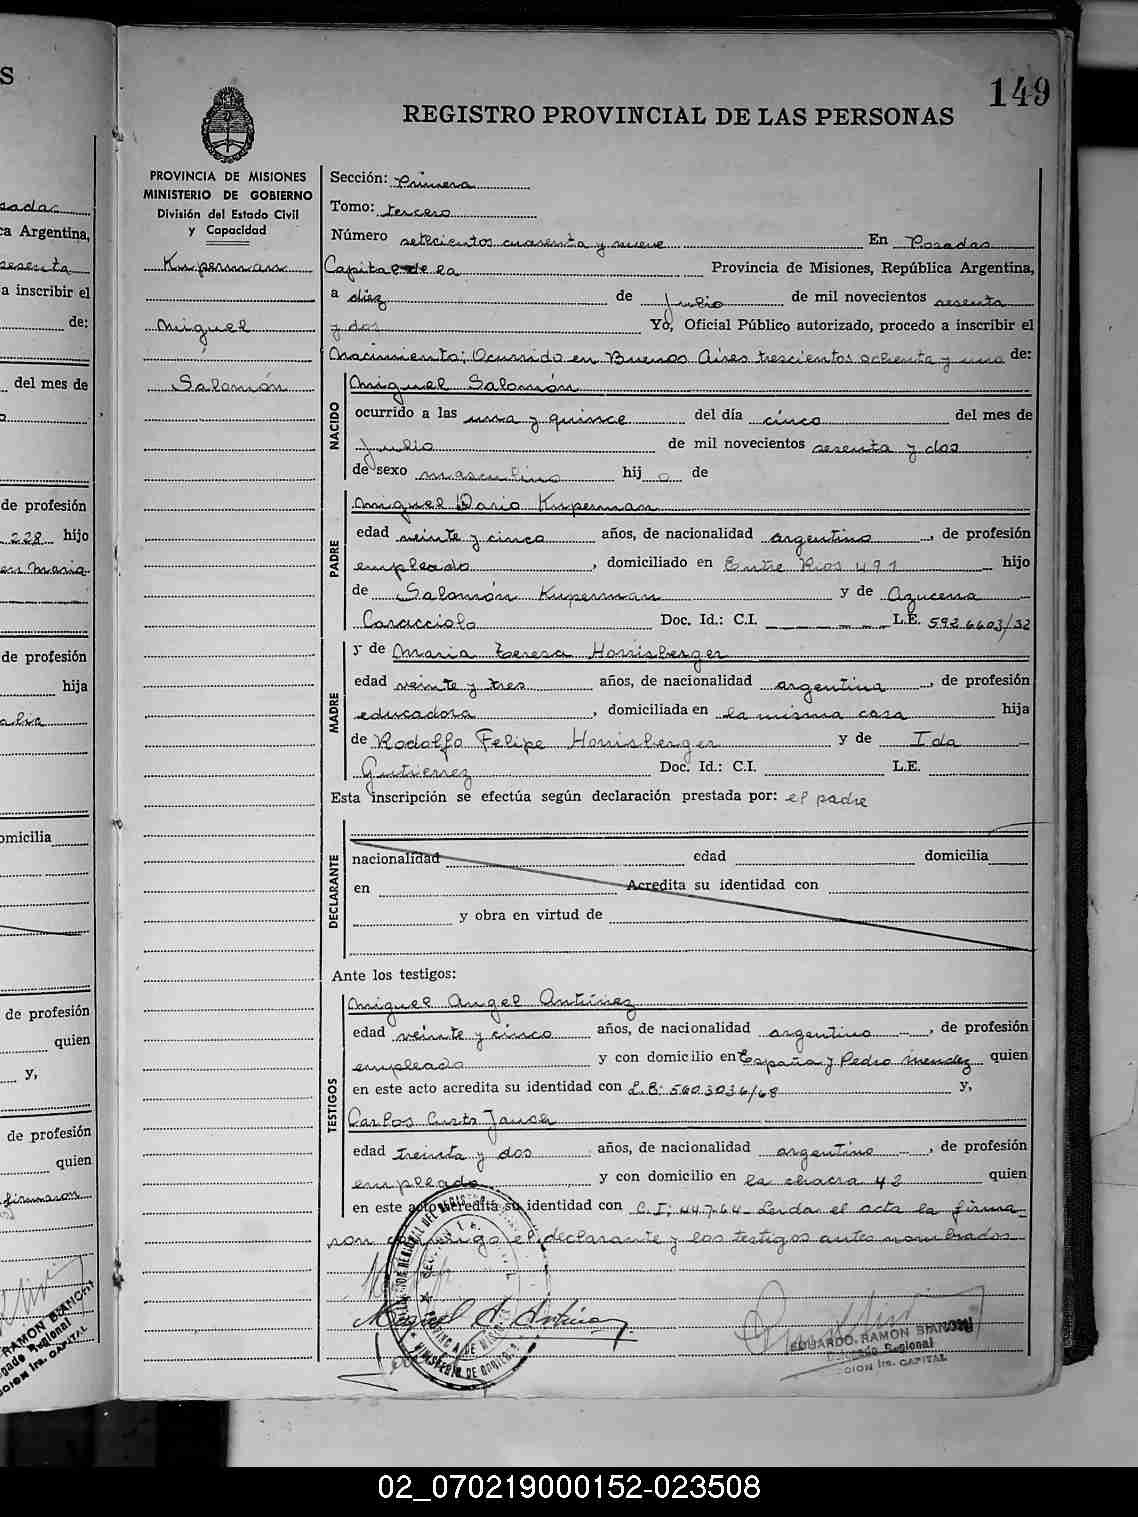 149
REGISTRO PROVINCIAL DE LAS PERSONAS
PROVINCIA DE MISIONES
MINISTERIO DE GOBIERNO
División del Estado Civil
y Capacidad
Kuperman
Miguel
Salomón
Sección: Primera
Tomo: tercero
Número setecientos cuarenta y nueve En Posadas
Capital de la Provincia de Misiones, República Argentina,
a diez de Julio de mil novecientos sesenta
y dos Yo, Oficial Público autorizado, procedo a inscribir el
Nacimiento; Ocurrido en Buenos Aires trescientos ochenta y uno de:
NACIDO
Miguel Salomón
ocurrido a las una y quince del día cinco del mes de
Julio de mil novecientos sesenta y dos
de sexo masculino hij o de
PADRE
Miguel Dario Kuperman
edad veinte y cinco años, de nacionalidad argentino, de profesión
empleado, domiciliado en Entre Rios 491 hijo
de Salomón Kuperman y de Azucena
Caracciolo Doc. Id.: C.I. L.E. 5926603/32
MADRE
y de Maria Teresa Horrisberger
edad veinte y tres años, de nacionalidad argentina, de profesión
educadora, domiciliada en la misma casa hija
de Rodolfo Felipe Horrisberger y de Ida
Gutierrez Doc. Id.: C.I. L.E.
Esta inscripción se efectúa según declaración prestada por: el padre
DECLARANTE
nacionalidad edad domicilia
en Acredita su identidad con
y obra en virtud de
Ante los testigos:
TESTIGOS
Miguel Angel Antúnez
edad veinte y cinco años, de nacionalidad argentino, de profesión
empleado y con domicilio en España y Pedro Mendez quien
en este acto acredita su identidad con L.E: 5603036/68 y,
Carlos Curts Jauch
edad treinta y dos años, de nacionalidad argentino, de profesión
empleado y con domicilio en la chacra 42 quien
en este acto acredita su identidad con C.I; 44.764 Leída el acta la firma-
ron conmigo el declarante y los testigos antes nombrados
Miguel A. Antúnez
EDUARDO RAMON BIANCHI
Delegado Regional
CCION 1ra. CAPITAL
MINISTERIO DE GOBIERNO
PROVINCIA DE MISIONES
del mes de
de profesión
228 hijo
de profesión
hija
omicilia
de profesión
quien
y,
de profesión
quien
firmaron
RAMON BIANCHI
02_070219000152-023508